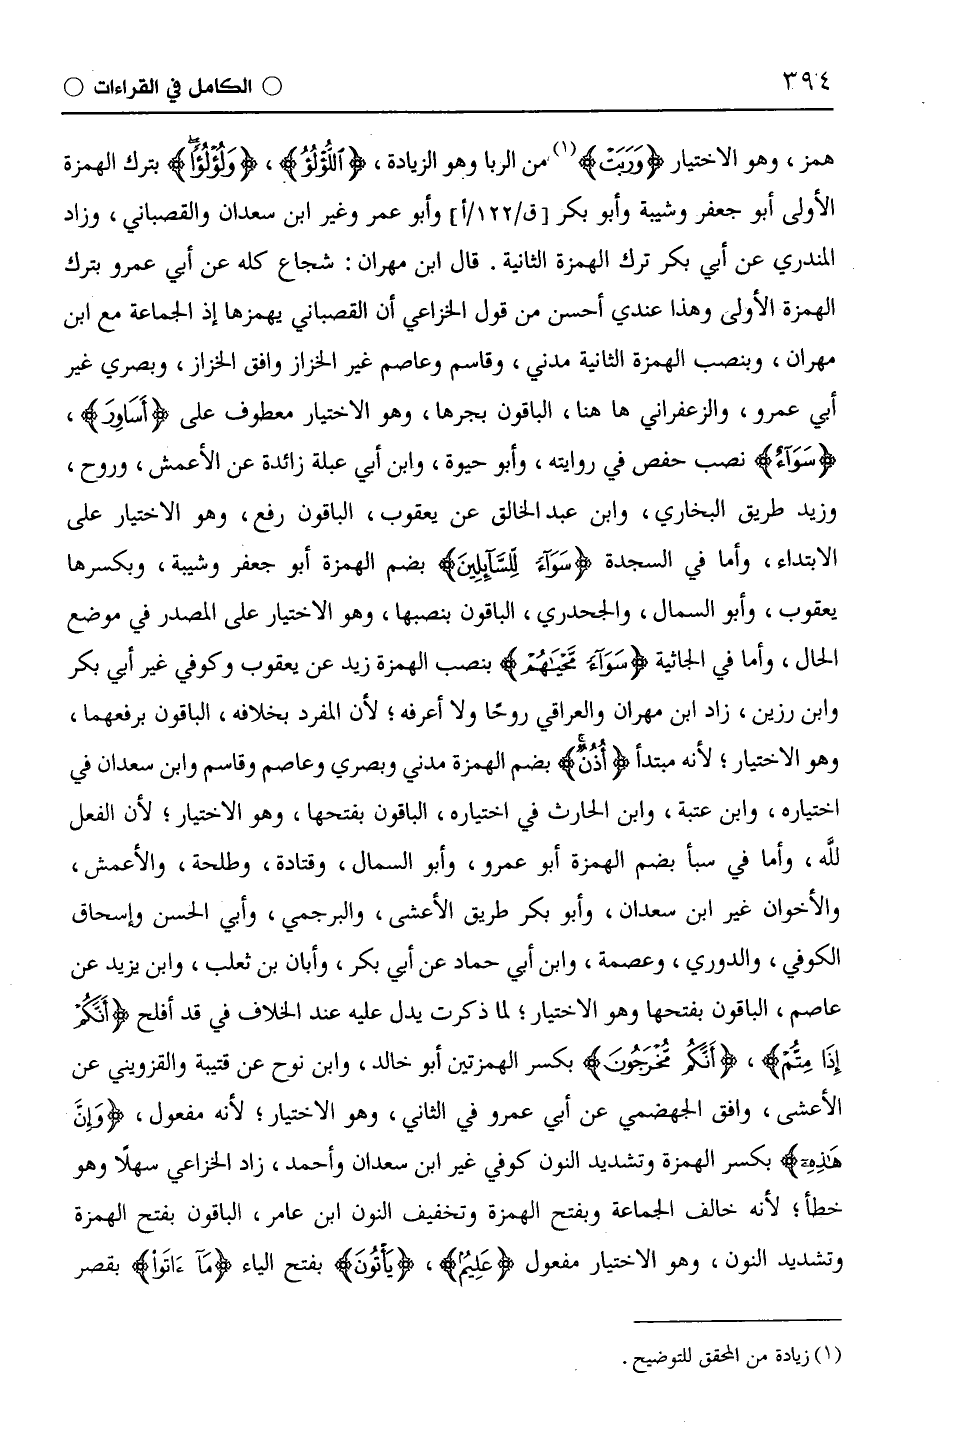 ٣٩٤ ○ الكامل في القراءات ○
همز ، وهو الاختيار ﴿وَرَبَتْ﴾(١) من الربا وهو الزيادة ، ﴿ٱللُّؤْلُؤُ﴾ ، ﴿وَلُؤْلُؤًا﴾ بترك الهمزة
الأولى أبو جعفر وشيبة وأبو بكر [ق/١٢٢/أ] وأبو عمر وغير ابن سعدان والقصباني ، وزاد
المنذري عن أبي بكر ترك الهمزة الثانية . قال ابن مهران : شجاع كله عن أبي عمرو بترك
الهمزة الأولى وهذا عندي أحسن من قول الخزاعي أن القصباني يهمزها إذ الجماعة مع ابن
مهران ، وبنصب الهمزة الثانية مدني ، وقاسم وعاصم غير الخزاز وافق الخزاز ، وبصري غير
أبي عمرو ، والزعفراني ها هنا ، الباقون بجرها ، وهو الاختيار معطوف على ﴿أَسَاوِرَ﴾ ،
﴿سَوَآءً﴾ نصب حفص في روايته ، وأبو حيوة ، وابن أبي عبلة زائدة عن الأعمش ، وروح ،
وزيد طريق البخاري ، وابن عبد الخالق عن يعقوب ، الباقون رفع ، وهو الاختيار على
الابتداء ، وأما في السجدة ﴿سَوَآءً لِّلسَّآئِلِينَ﴾ بضم الهمزة أبو جعفر وشيبة ، وبكسرها
يعقوب ، وأبو السمال ، والجحدري ، الباقون بنصبها ، وهو الاختيار على المصدر في موضع
الحال ، وأما في الجاثية ﴿سَوَآءً مَّحْيَاهُمْ﴾ بنصب الهمزة زيد عن يعقوب وكوفي غير أبي بكر
وابن رزين ، زاد ابن مهران والعراقي روحًا ولا أعرفه ؛ لأن المفرد بخلافه ، الباقون برفعهما ،
وهو الاختيار ؛ لأنه مبتدأ ﴿أُذُنٌ﴾ بضم الهمزة مدني وبصري وعاصم وقاسم وابن سعدان في
اختياره ، وابن عتبة ، وابن الحارث في اختياره ، الباقون بفتحها ، وهو الاختيار ؛ لأن الفعل
للَّه ، وأما في سبأ بضم الهمزة أبو عمرو ، وأبو السمال ، وقتادة ، وطلحة ، والأعمش ،
والأخوان غير ابن سعدان ، وأبو بكر طريق الأعشى ، والبرجمي ، وأبي الحسن وإسحاق
الكوفي ، والدوري ، وعصمة ، وابن أبي حماد عن أبي بكر ، وأبان بن ثعلب ، وابن يزيد عن
عاصم ، الباقون بفتحها وهو الاختيار ؛ لما ذكرت يدل عليه عند الخلاف في قد أفلح ﴿أَنَّكُمْ
إِذَا مِتُّمْ﴾ ، ﴿أَنَّكُم مُّخْرَجُونَ﴾ بكسر الهمزتين أبو خالد ، وابن نوح عن قتيبة والقزويني عن
الأعشى ، وافق الجهضمي عن أبي عمرو في الثاني ، وهو الاختيار ؛ لأنه مفعول ، ﴿وَإِنَّ
هَٰذِهِۦٓ﴾ بكسر الهمزة وتشديد النون كوفي غير ابن سعدان وأحمد ، زاد الخزاعي سهلًا وهو
خطأ ؛ لأنه خالف الجماعة وبفتح الهمزة وتخفيف النون ابن عامر ، الباقون بفتح الهمزة
وتشديد النون ، وهو الاختيار مفعول ﴿عَلِيمٌ﴾ ، ﴿يَأْتُونَ﴾ بفتح الياء ﴿مَآ ءَاتَوا۟﴾ بقصر
(١) زيادة من المحقق للتوضيح .